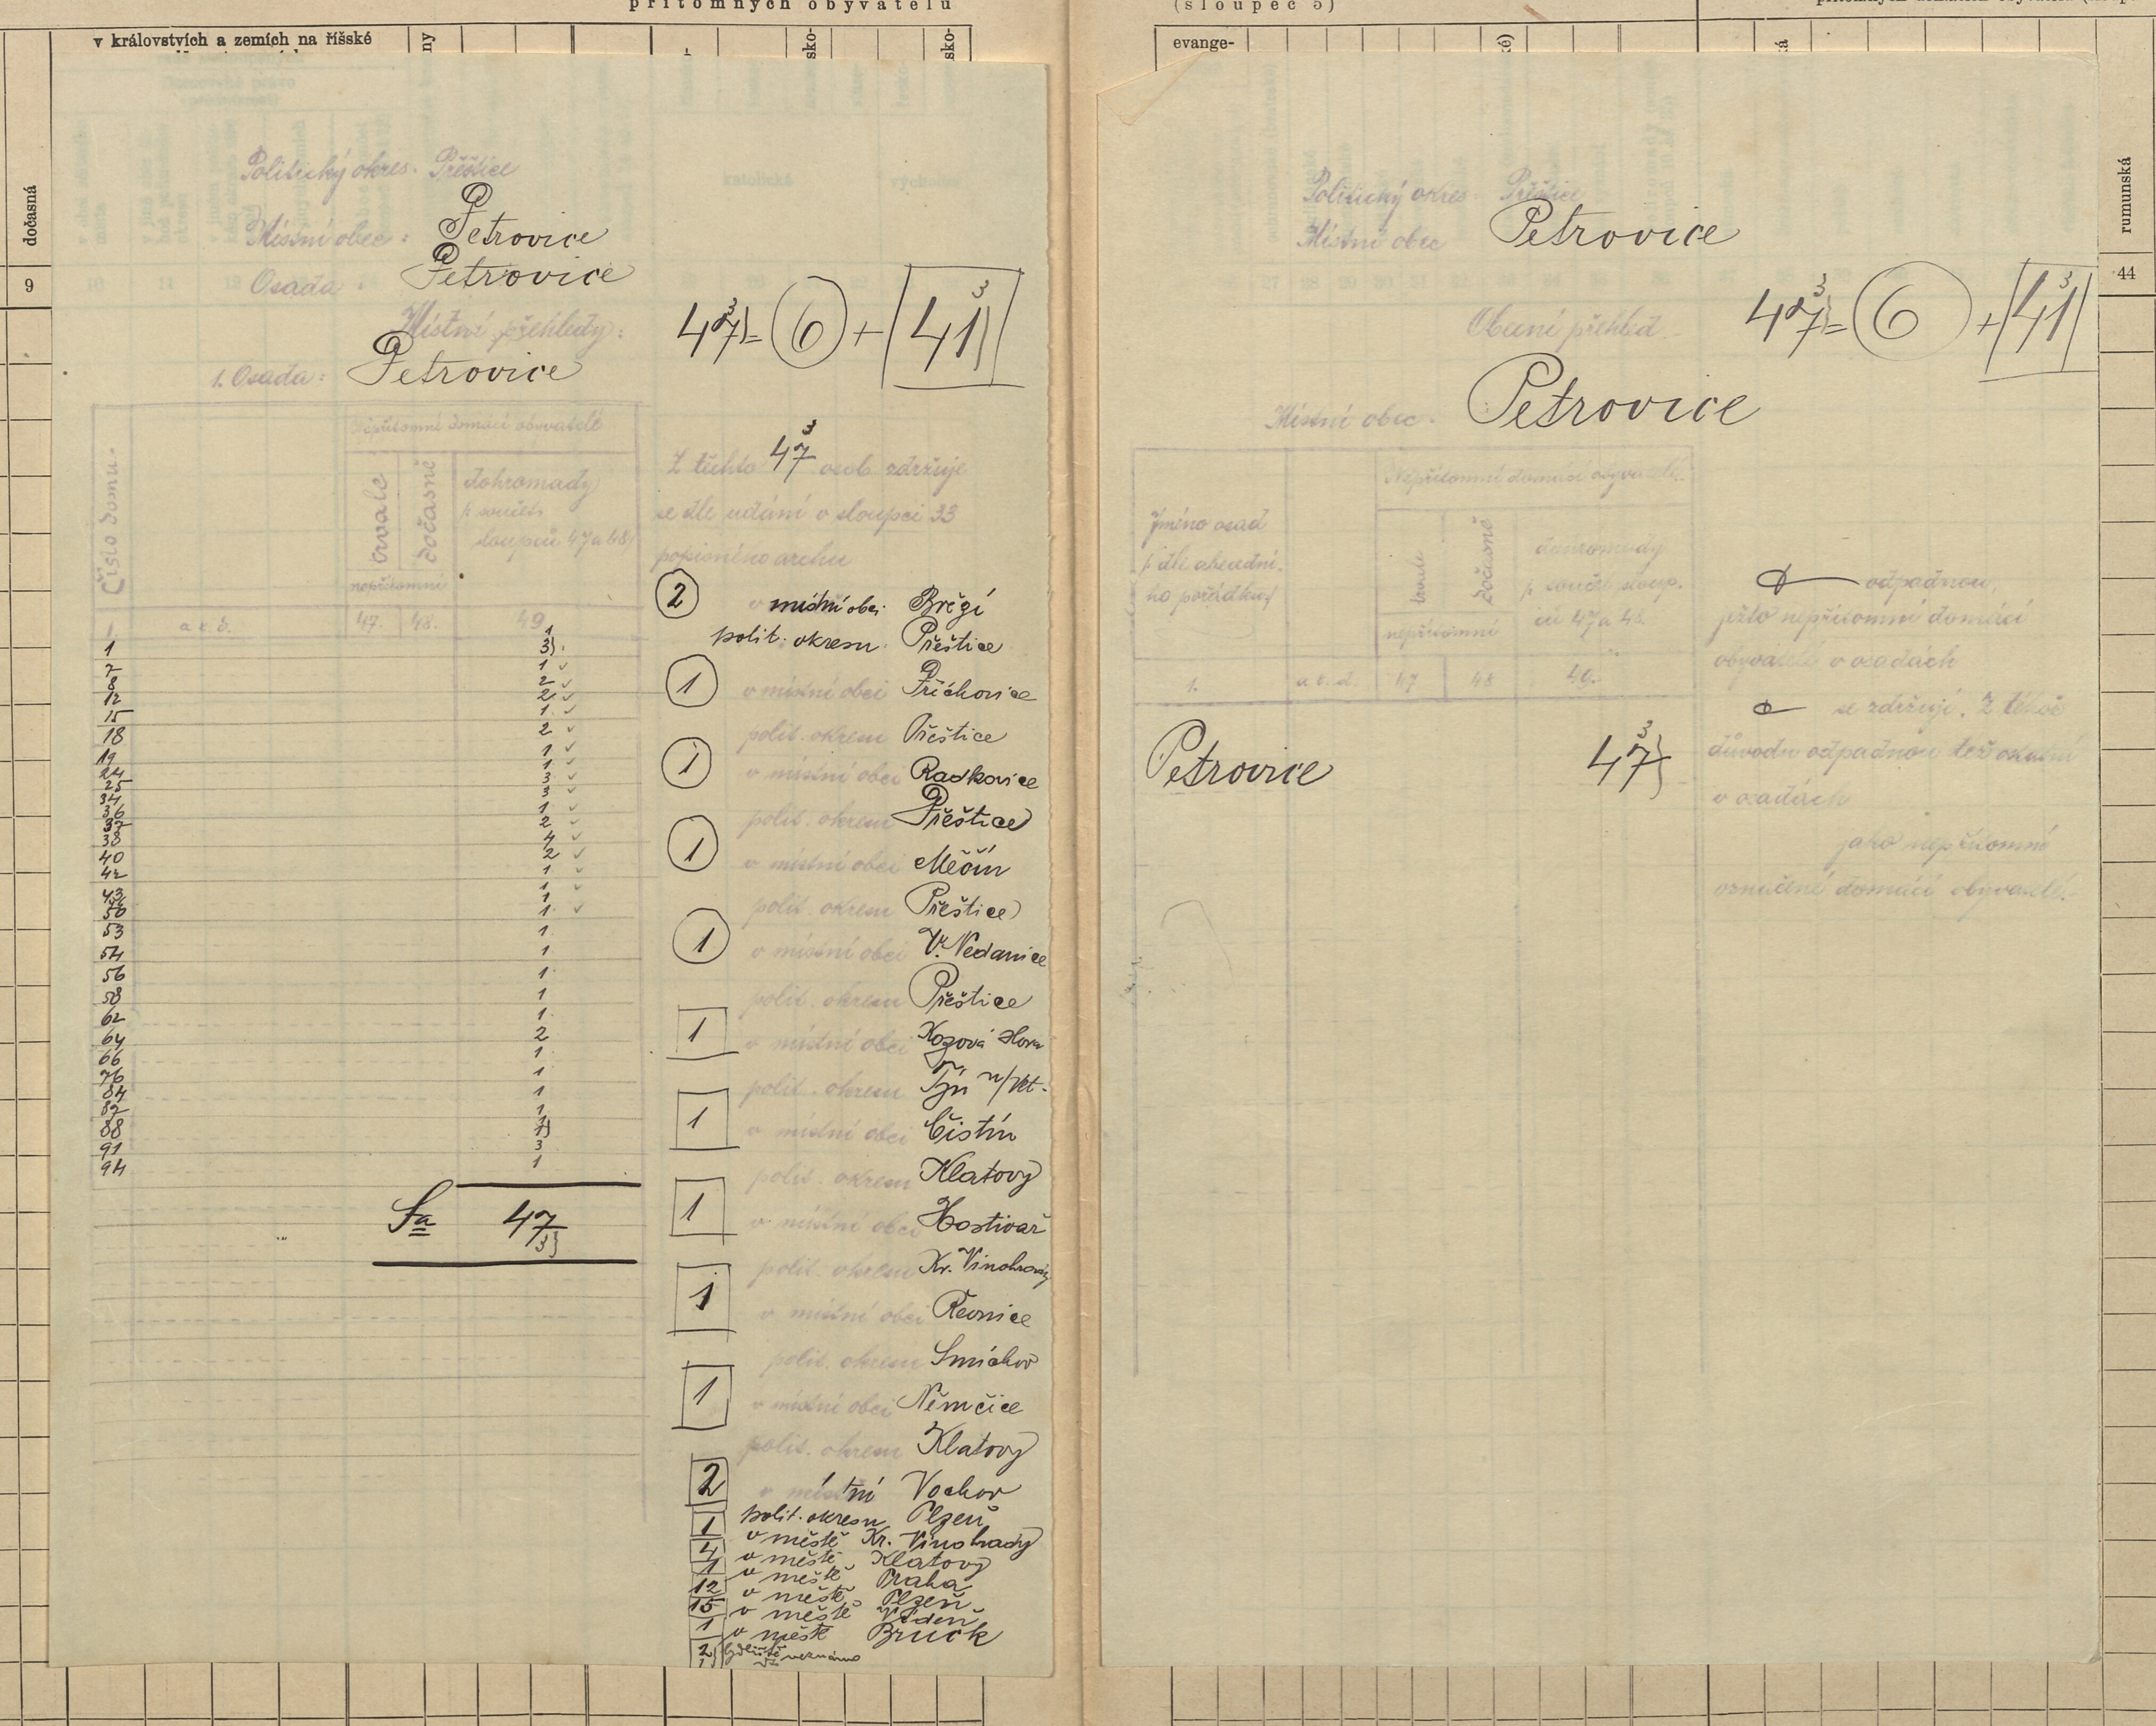 přítomných obyvatelů
v královstvích a zemích na říšské
ny
sko-
sko-
dočasná
9
Politický okres: Přeštice
Místní obec: Petrovice
Osada: Petrovice
Místní přehledy:
1. Osada: Petrovice
47 3) = 6 + 41 3)
Číslo domu
Nepřítomní domácí obyvatelé
trvale
dočasně
dohromady
(součet
sloupců 47 a 48)
nepřítomní
1
a t. d.
47.
48.
49
1 3) 1
7 1
8 2
12 2
15 1
18 2
19 1
24 1
25 3
34 3
36 1
37 2
38 4
40 2
42 1
43 1
50 1
53 1
54 1
56 1
58 1
62 1
64 2
66 1
76 1
84 1
87 1
88 1)
91 3
94 1
Sa 47
3)
Z těchto 47 3 osob zdržuje
se dle udání v sloupci 33
popisního archu
2 v místní obci
polit. okresu Přeštice
1 v místní obci Příchovice
polit. okresu Přeštice
1 v místní obci Radkovice
polit. okresu Přeštice
1 v místní obci Měčín
polit. okresu Přeštice
1 v místní obci V. Nedanice
polit. okresu Přeštice
1 v místní obci Kozová Hora
polit. okresu Týn n/Vlt.
1 v místní obci Čistín
polit. okresu Klatovy
1 v místní obci Hostivař
polit. okresu Kr. Vinohrady
1 v místní obci Řevnice
polit. okresu Smíchov
1 v místní obci Němčice
polit. okresu Klatovy
2 v místní Vochov
polit. okresu Plzeň
1 v městě Kr. Vinohrady
4 v městě Klatovy
1 v městě Praha
12 v městě Plzeň
15 v městě Vídeň
1 v městě Bruck
2 neznámo
1)
(sloupec 5)
evange-
ké)
rumunská
44
Politický okres: Přeštice
Místní obec Petrovice
Obecní přehled
47 3) = 6 + 41 3)
Místní obec: Petrovice
Jméno osad
(dle abecední-
ho pořádku)
Nepřítomní domácí obyvatelé
trvale
dočasně
dohromady
(součet sloup-
ců 47 a 48
nepřítomní
1.
a t. d.
47
48
49.
Petrovice 47 3)
odpadnou,
ježto nepřítomní domácí
obyvatelé v osadách
se zdržují. Z téhož
důvodu odpadnou též
v osadách
jako nepřítomní
označené domácí obyvatele.